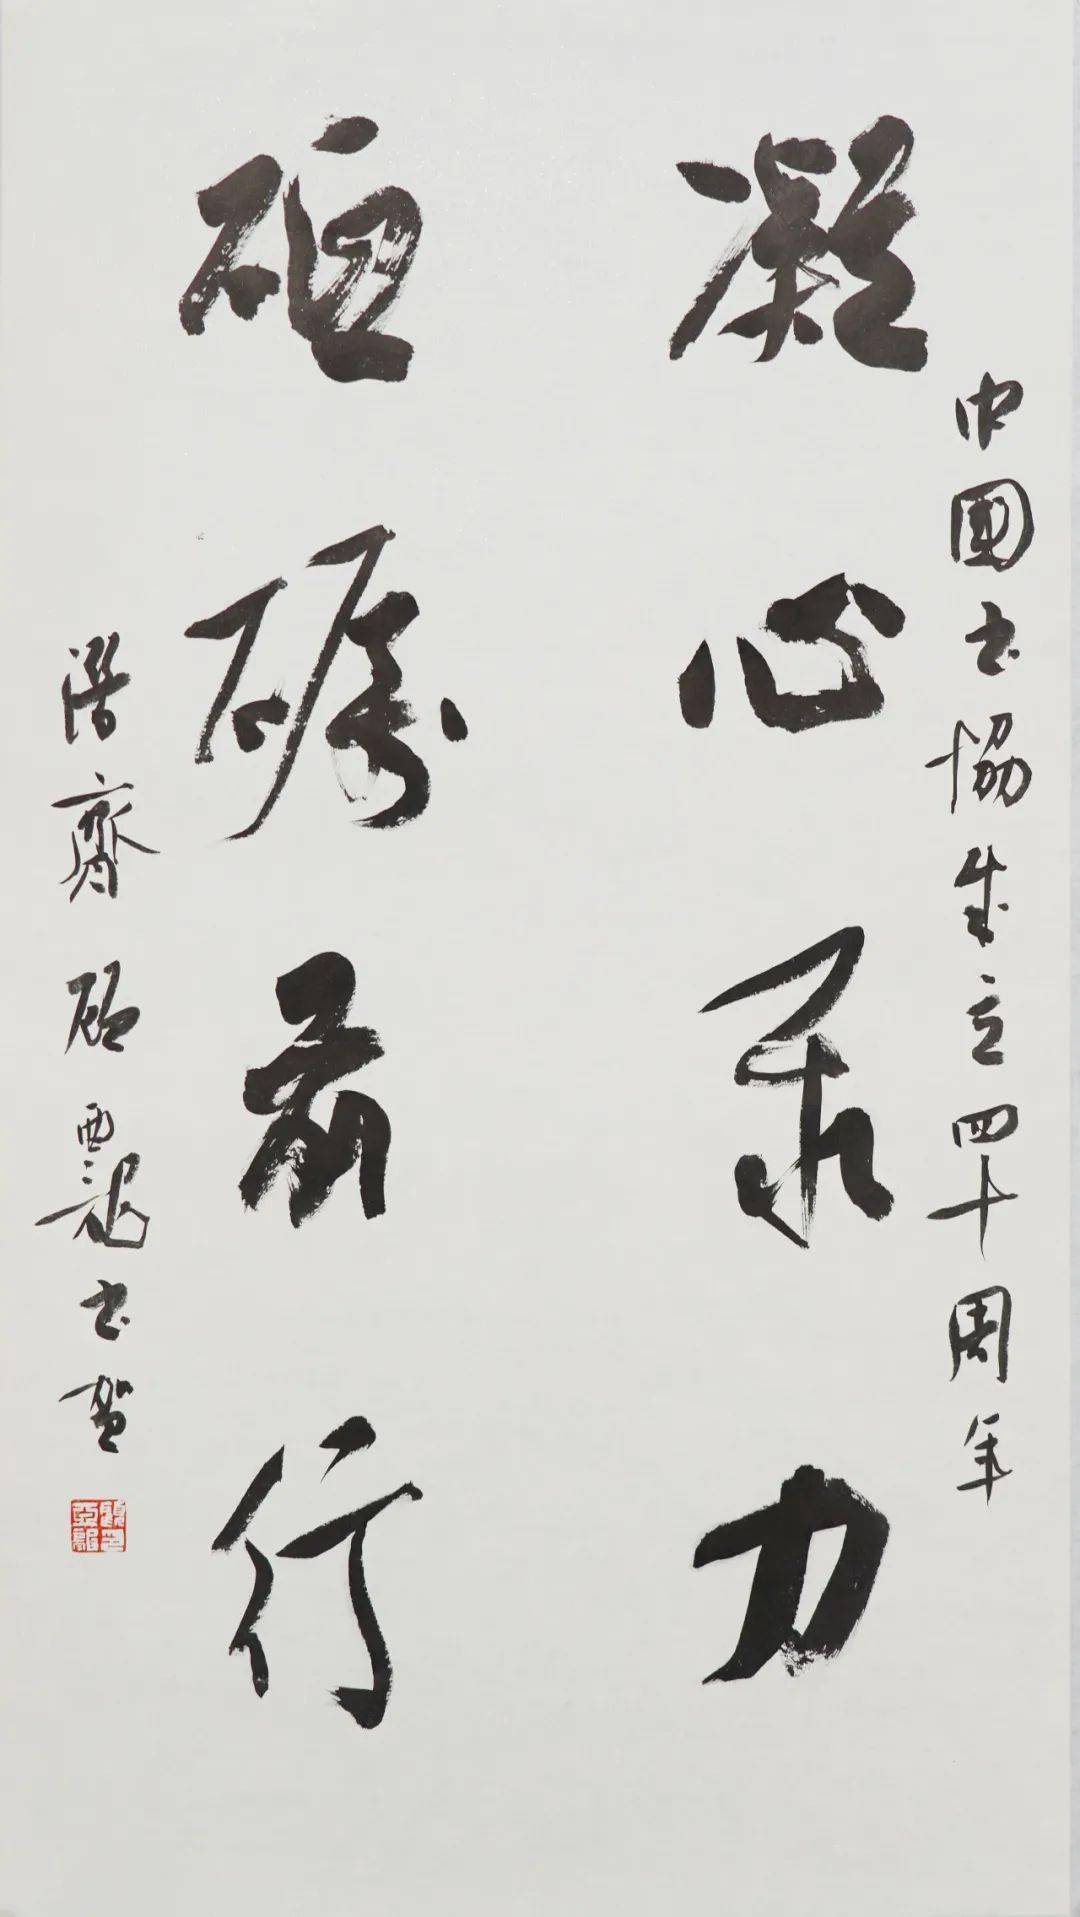 中國書協成立四十周年
凝心聚力
砥礪前行
潛齋顧亞龍書賀